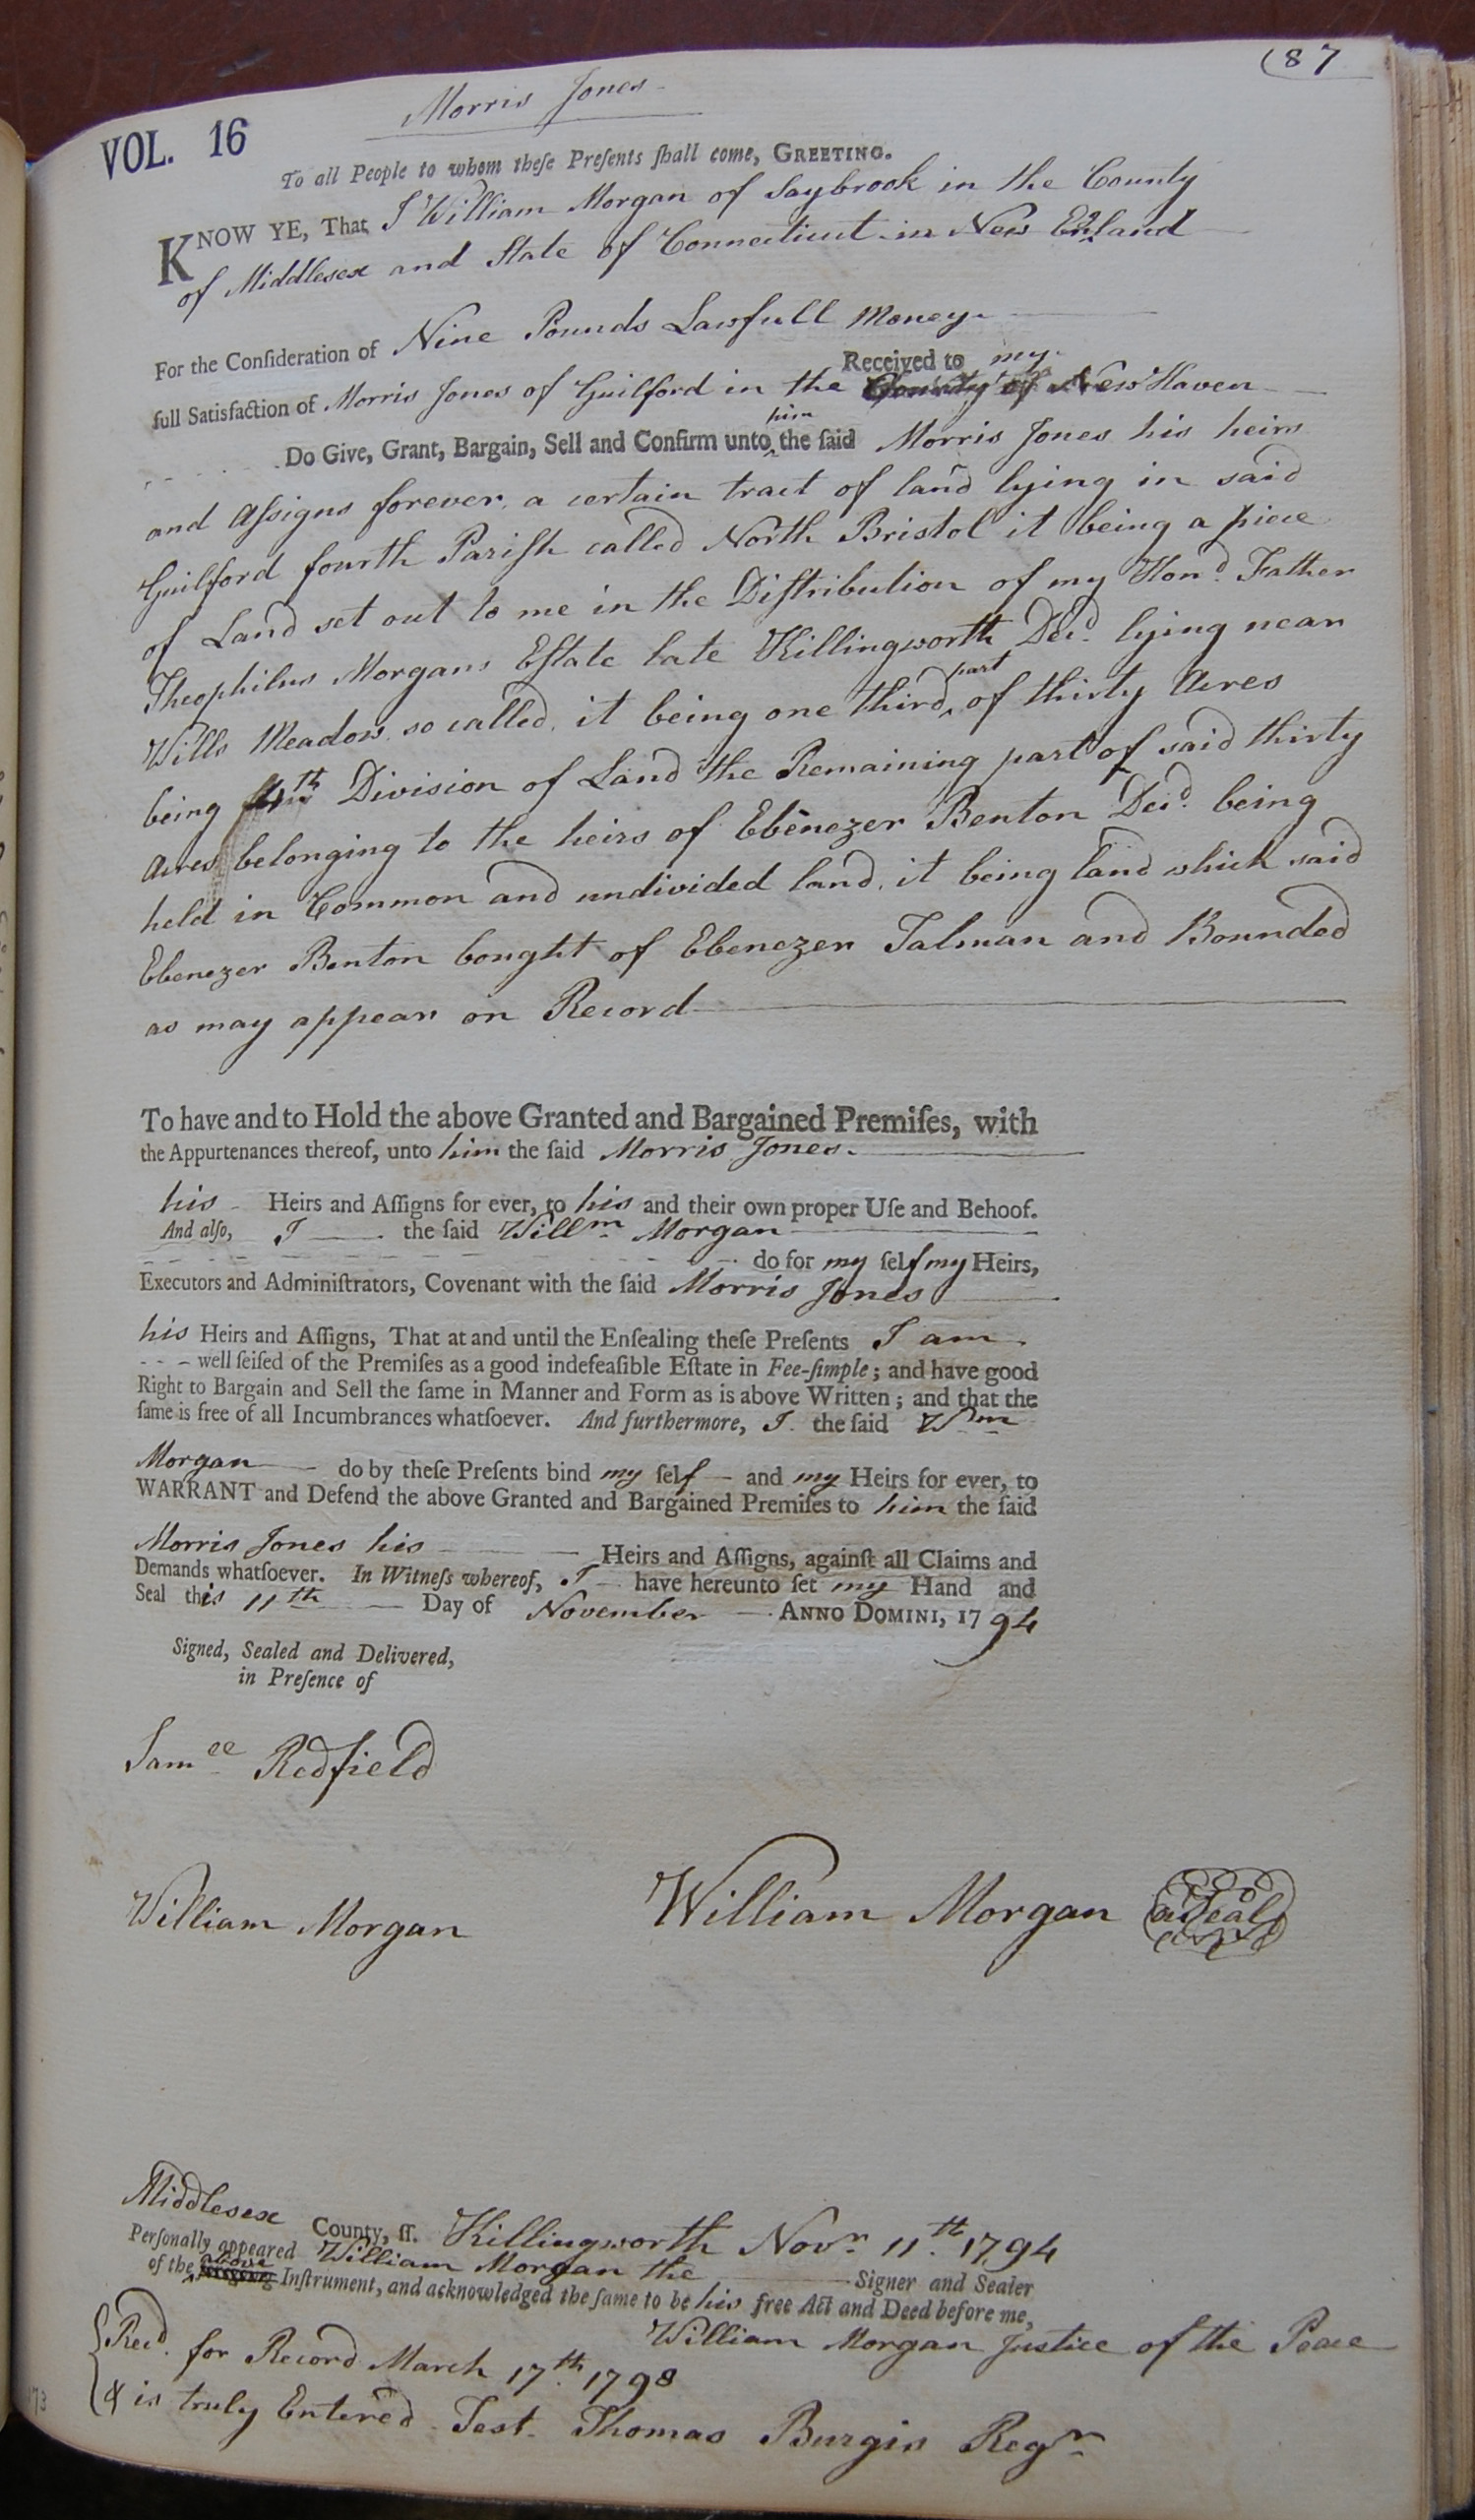 (87
Morris Jones
VOL. 16
To all People to whom theſe Preſents ſhall come, GREETING.
KNOW YE, That I William Morgan of Saybrook in the County
of Middlesex and State of Connecticut in New England
For the Conſideration of Nine Pounds Lawfull Money
Received to my
full Satisfaction of Morris Jones of Guilford in the County of New Haven
Do Give, Grant, Bargain, Sell and Confirm unto him the ſaid Morris Jones his heirs
and Aſsigns forever, a certain tract of land lying in said
Guilford fourth Pariſh called North Bristol it being a piece
of Land set out to me in the Diſtribution of my Hond. Father
Theophilus Morgans Eſtate late Killingworth Decd. lying near
Wills Meadow so called, it being one third part of thirty Acres
being th Division of Land the Remaining part of said thirty
Acres belonging to the heirs of Ebenezer Benton Decd. being
held in Common and undivided land, it being land which said
Ebenezer Benton bought of Ebenezer Talman and Bounded
as may appear on Record
To have and to Hold the above Granted and Bargained Premiſes, with
the Appurtenances thereof, unto him the ſaid Morris Jones.
his Heirs and Aſſigns for ever, to his and their own proper Uſe and Behoof.
And alſo, I the ſaid Willm Morgan
do for my ſelf my Heirs,
Executors and Adminiſtrators, Covenant with the ſaid Morris Jones
his Heirs and Aſſigns, That at and until the Enſealing theſe Preſents I am
well ſeiſed of the Premiſes as a good indefeaſible Eſtate in Fee-ſimple; and have good
Right to Bargain and Sell the ſame in Manner and Form as is above Written; and that the
ſame is free of all Incumbrances whatſoever. And furthermore, I the ſaid Wm
Morgan do by theſe Preſents bind my ſelf and my Heirs for ever, to
WARRANT and Defend the above Granted and Bargained Premiſes to him the ſaid
Morris Jones his Heirs and Aſſigns, againſt all Claims and
Demands whatſoever. In Witneſs whereof, I have hereunto ſet my Hand and
Seal this 11th Day of November ANNO DOMINI, 1794
Signed, Sealed and Delivered,
in Preſence of
Samll Redfield
William Morgan
William Morgan a Seal
Middlesex County, ſſ. Killingworth Novr. 11th. 1794
Perſonally appeared William Morgan the Signer and Sealer
of the above Inſtrument, and acknowledged the ſame to be his free Act and Deed before me,
William Morgan Justice of the Peace
Recd. for Record March 17th. 1798
& is truly Entered Test. Thomas Burgis Regr